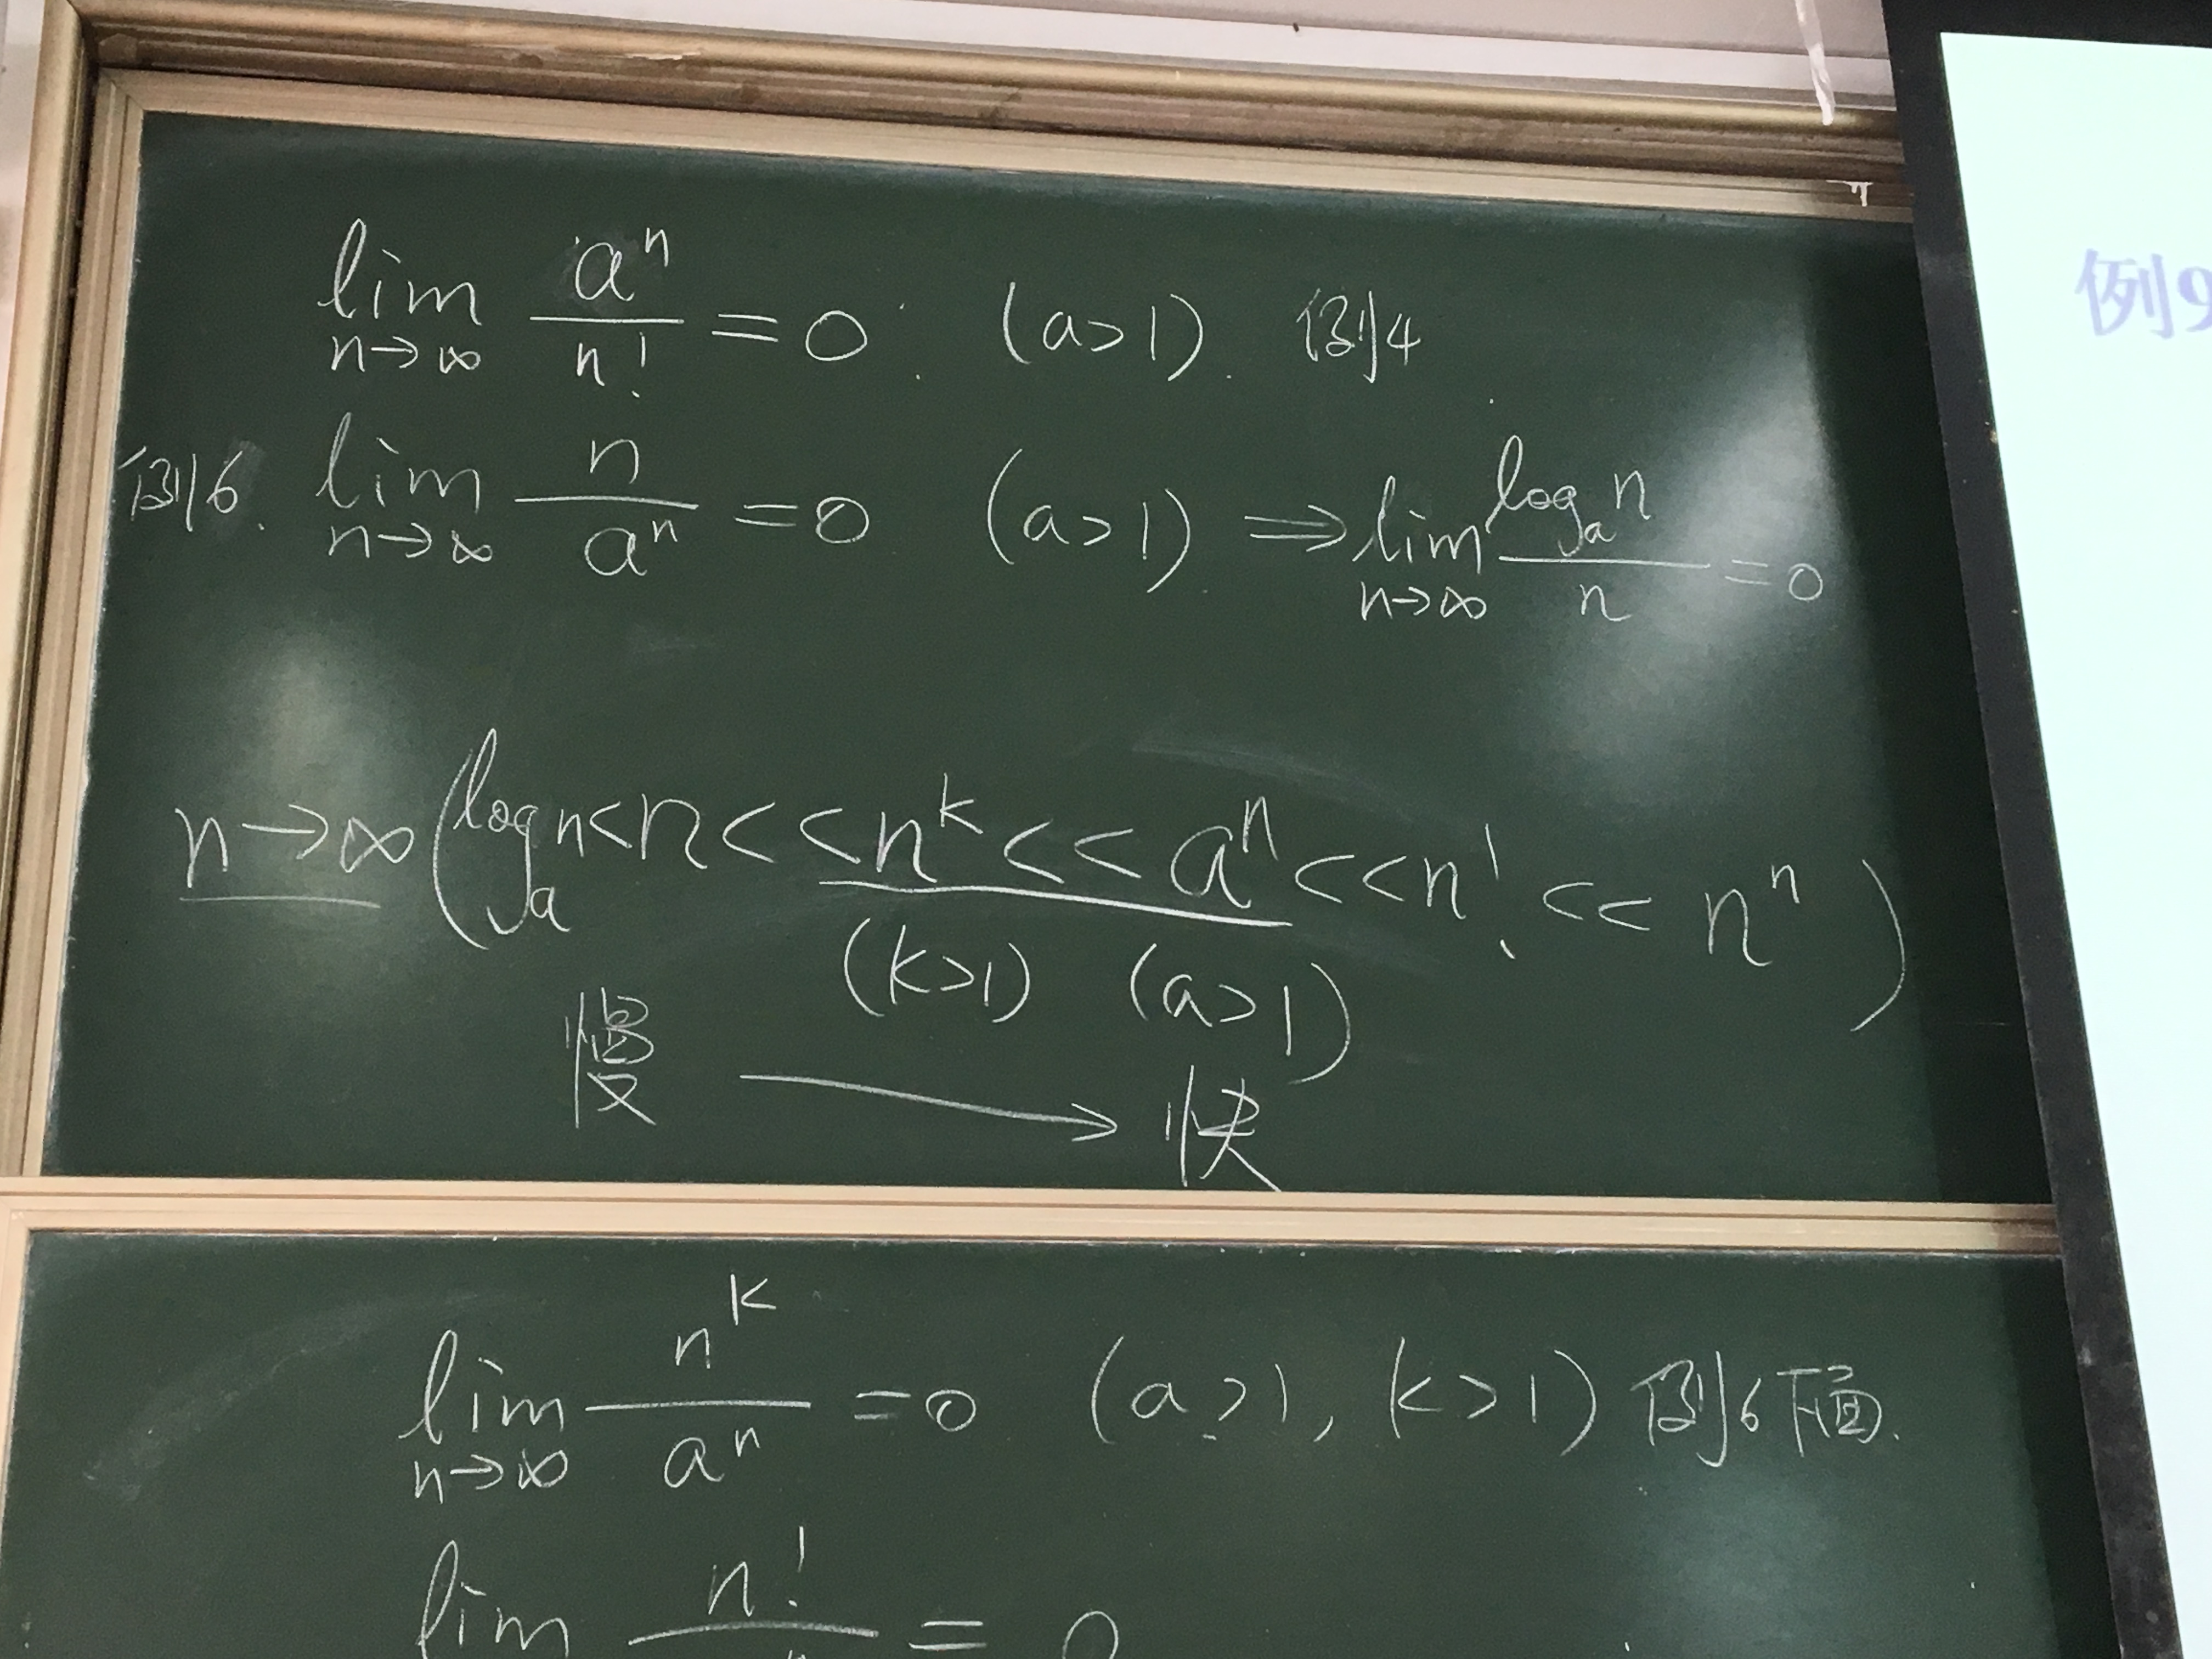 lim n→∞ aⁿ/n! = 0. (a>1). 例4
例6. lim n→∞ n/aⁿ = 0 (a>1). ⇒ lim n→∞ logₐn/n = 0
n→∞ (logₐn<n<<nᵏ<<aⁿ<<n!<<nⁿ)
(k>1) (a>1)
慢 → 快
lim n→∞ nᵏ/aⁿ = 0 (a>1, k>1) 例6下面.
lim n! = 0
例9